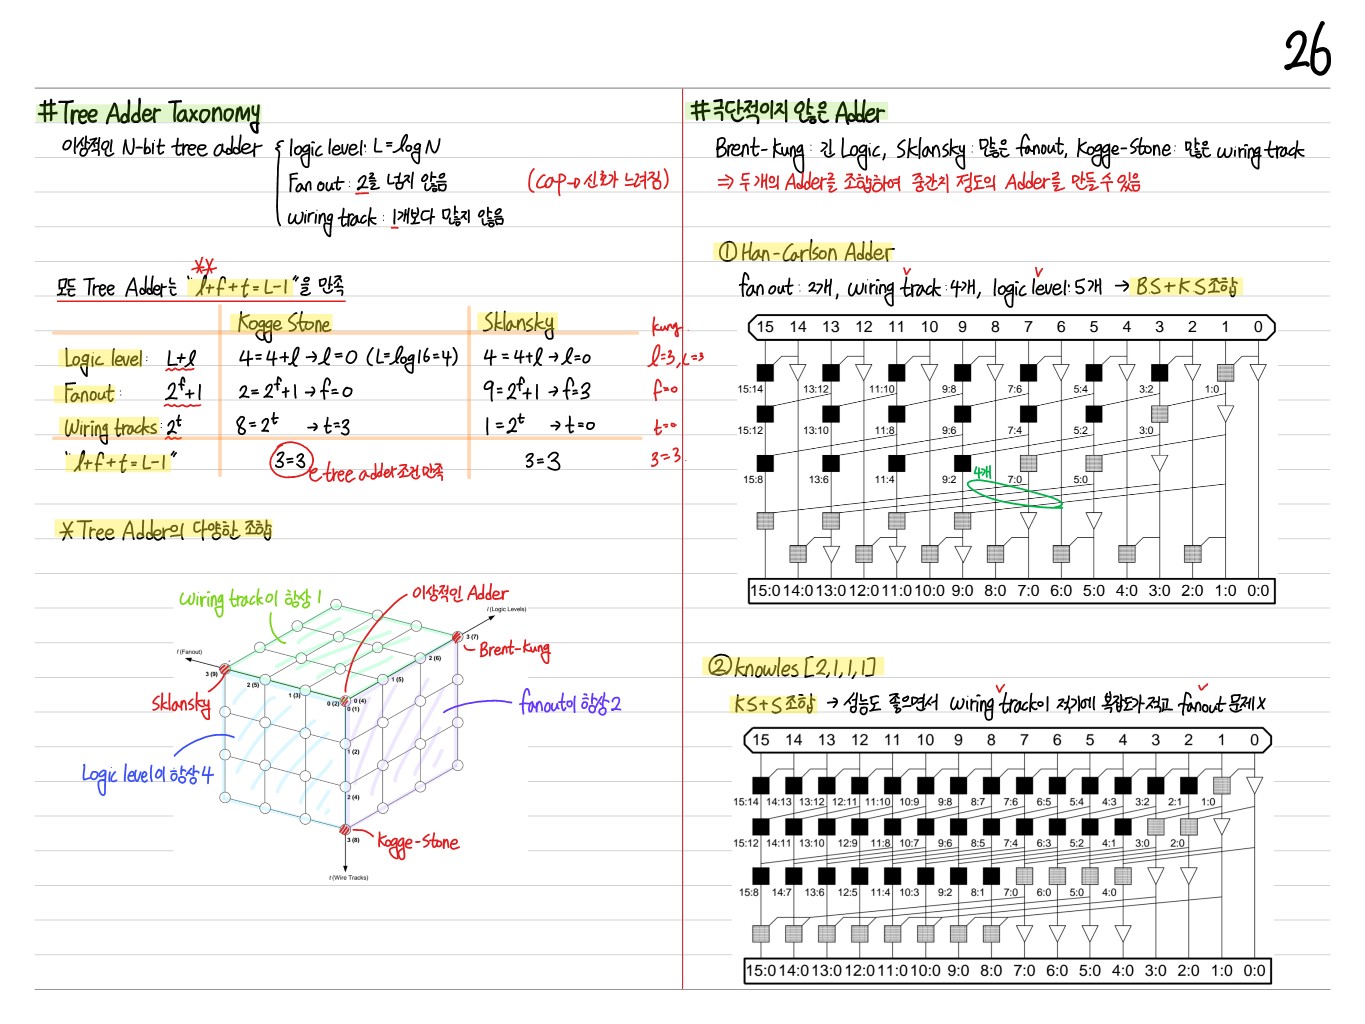 26
#Tree Adder Taxonomy
이상적인 N-bit tree adder
logic level: L=logN
Fan out: 2를 넘지 않음
(cap→신호가 느려짐)
wiring track: 1개보다 많지 않음
모든 Tree Adder는 "l+f+t=L-1"을 만족
Kogge Stone Sklansky kung
Logic level: L+l 4=4+l→l=0 (L=log16=4) 4=4+l→l=0 l=3, L=3
Fanout: 2^f+1 2=2^f+1→f=0 9=2^f+1→f=3 f=0
Wiring tracks: 2^t 8=2^t →t=3 1=2^t →t=0 t=0
"l+f+t=L-1" 3=3 3=3 3=3
tree adder조건 만족
*Tree Adder의 다양한 조합
wiring track이 항상 1
이상적인 Adder
l (Logic Levels)
3 (7)
Brent-Kung
f (Fanout)
2 (6)
3 (9)
2 (5)
1 (5)
1 (3)
0 (2)
0 (4)
0 (1)
Sklansky
fanout이 항상 2
1 (2)
Logic level이 항상 4
2 (4)
3 (8)
Kogge-Stone
t (Wire Tracks)
#극단적이지 않은 Adder
Brent-Kung: 긴 Logic, Sklansky: 많은 fanout, Kogge-Stone: 많은 wiring track
⇒ 두개의 Adder를 조합하여 중간지 정도의 Adder를 만들 수 있음
① Han-Carlson Adder
fan out: 2개, wiring track: 4개, logic level: 5개 → BS+KS조합
15 14 13 12 11 10 9 8 7 6 5 4 3 2 1 0
15:14 13:12 11:10 9:8 7:6 5:4 3:2 1:0
15:12 13:10 11:8 9:6 7:4 5:2 3:0
4개
15:8 13:6 11:4 9:2 7:0 5:0
15:0 14:0 13:0 12:0 11:0 10:0 9:0 8:0 7:0 6:0 5:0 4:0 3:0 2:0 1:0 0:0
② Knowles [2,1,1,1]
KS+S조합 → 성능도 좋으면서 wiring track이 적기에 복잡도가 적고 fanout 문제X
15 14 13 12 11 10 9 8 7 6 5 4 3 2 1 0
15:14 14:13 13:12 12:11 11:10 10:9 9:8 8:7 7:6 6:5 5:4 4:3 3:2 2:1 1:0
15:12 14:11 13:10 12:9 11:8 10:7 9:6 8:5 7:4 6:3 5:2 4:1 3:0 2:0
15:8 14:7 13:6 12:5 11:4 10:3 9:2 8:1 7:0 6:0 5:0 4:0
15:0 14:0 13:0 12:0 11:0 10:0 9:0 8:0 7:0 6:0 5:0 4:0 3:0 2:0 1:0 0:0